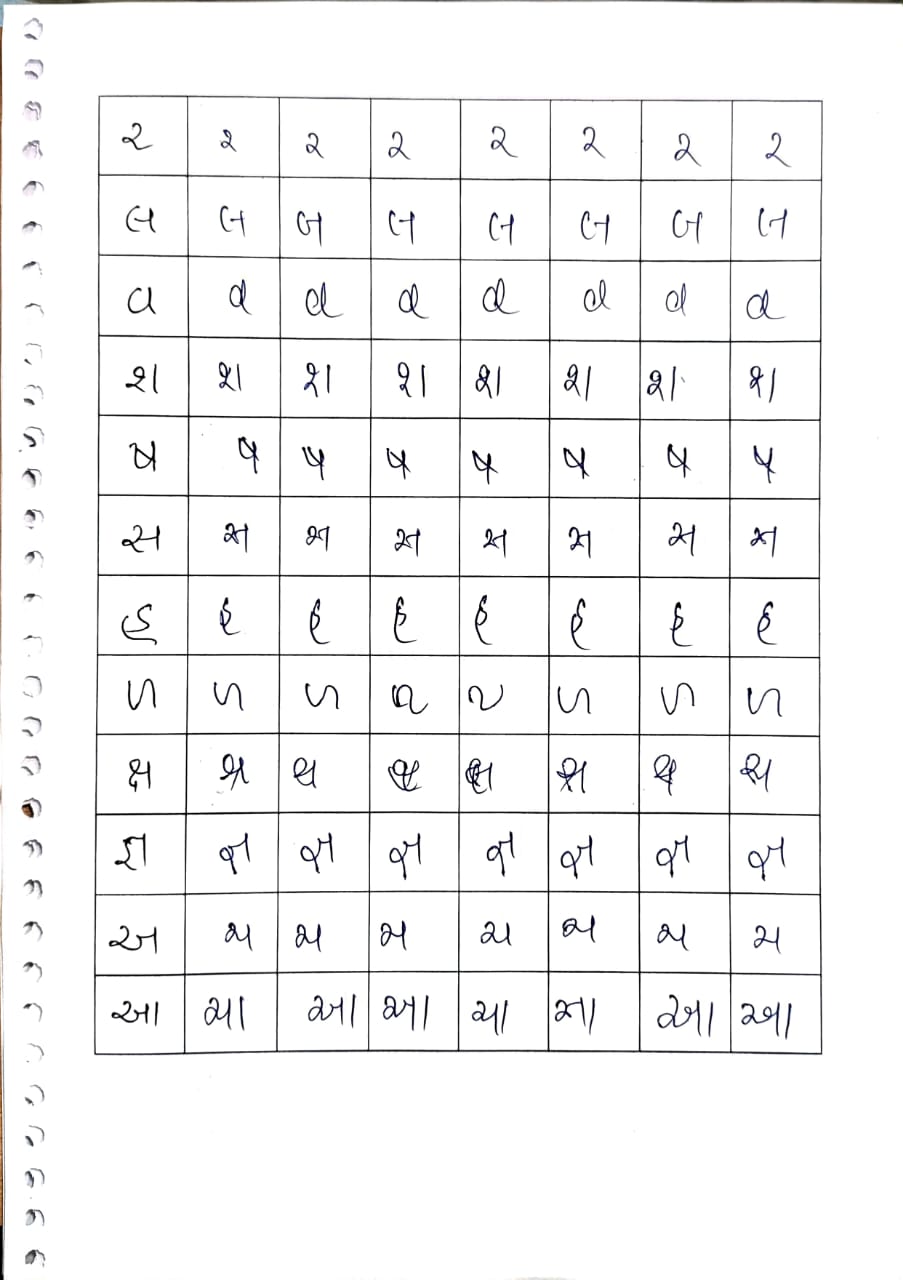 ર ર ર ર ર ર ર ર
લ લ લ લ લ લ લ લ
વ વ વ વ વ વ વ વ
શ શ શ શ શ શ શ શ
ષ ષ ષ ષ ષ ષ ષ ષ
સ સ સ સ સ સ સ સ
હ હ હ હ હ હ હ હ
ળ ળ ળ ળ ળ ળ ળ ળ
ક્ષ ક્ષ ક્ષ ક્ષ ક્ષ ક્ષ ક્ષ ક્ષ
જ્ઞ જ્ઞ જ્ઞ જ્ઞ જ્ઞ જ્ઞ જ્ઞ જ્ઞ
અ અ અ અ અ અ અ અ
આ આ આ આ આ આ આ આ